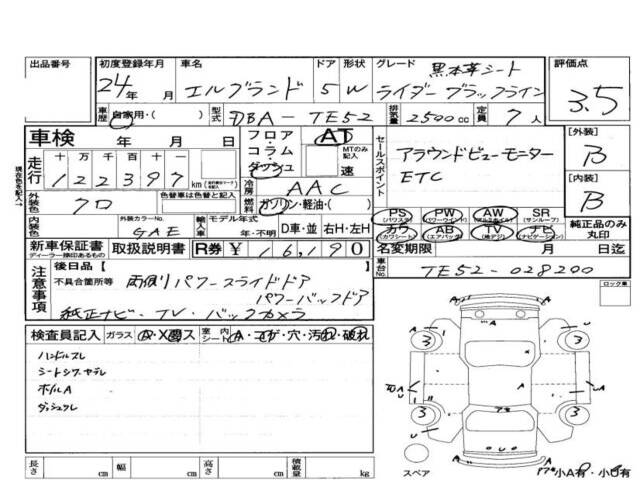 出品番号 初度登録年月 車名 ドア 形状 グレード 評価点
24年 月 エルグランド 5 W 黒本革シート ライダー ブラックライン 3.5
車歴 自家用・( ) 型式 DBA-TE52 排気量 2500cc 定員 7人
車検 年 月 日
フロア・コラム・ダッシュ AT MTのみ記入 速
セールスポイント アラウンドビューモニター
ETC
[外装] B
[内装] B
現在色を記入→
走行 十 万 千 百 十 一
122397 km
冷房 AAC
燃料 ガソリン・軽油・( )
外装色 クロ 色替車は色替と記入
内装色 外装カラーNo. GAE
輸入車 モデル年式 年・不明 D車・並 右H・左H
PS (パワステ) PW (パワーウインド) AW (アルミホイル) SR (サンルーフ)
カワ (カワシート) AB (エアバック) TV (純アジ) ナビ (ナビゲーション)
純正品のみ丸印
新車保証書 ディーラー捺印あるもの 取扱説明書 R券 ¥16,190
名変期限 月 日迄
車台No. TE52-028200
注意事項 後日品【 】
不具合箇所等 両側パワースライドドア
パワーバックドア
純正ナビ・TV・バックカメラ
ロック車
検査員記入 ガラス A・X・飛ス 室内シート A・コゲ・穴・汚れ・破れ
ハンドルスレ
シートシワ・ヤブレ
ダッシュスレ
3 3
3 3
長さ cm 幅 cm 高さ cm 積載量 kg
スペア
小A有・小U有